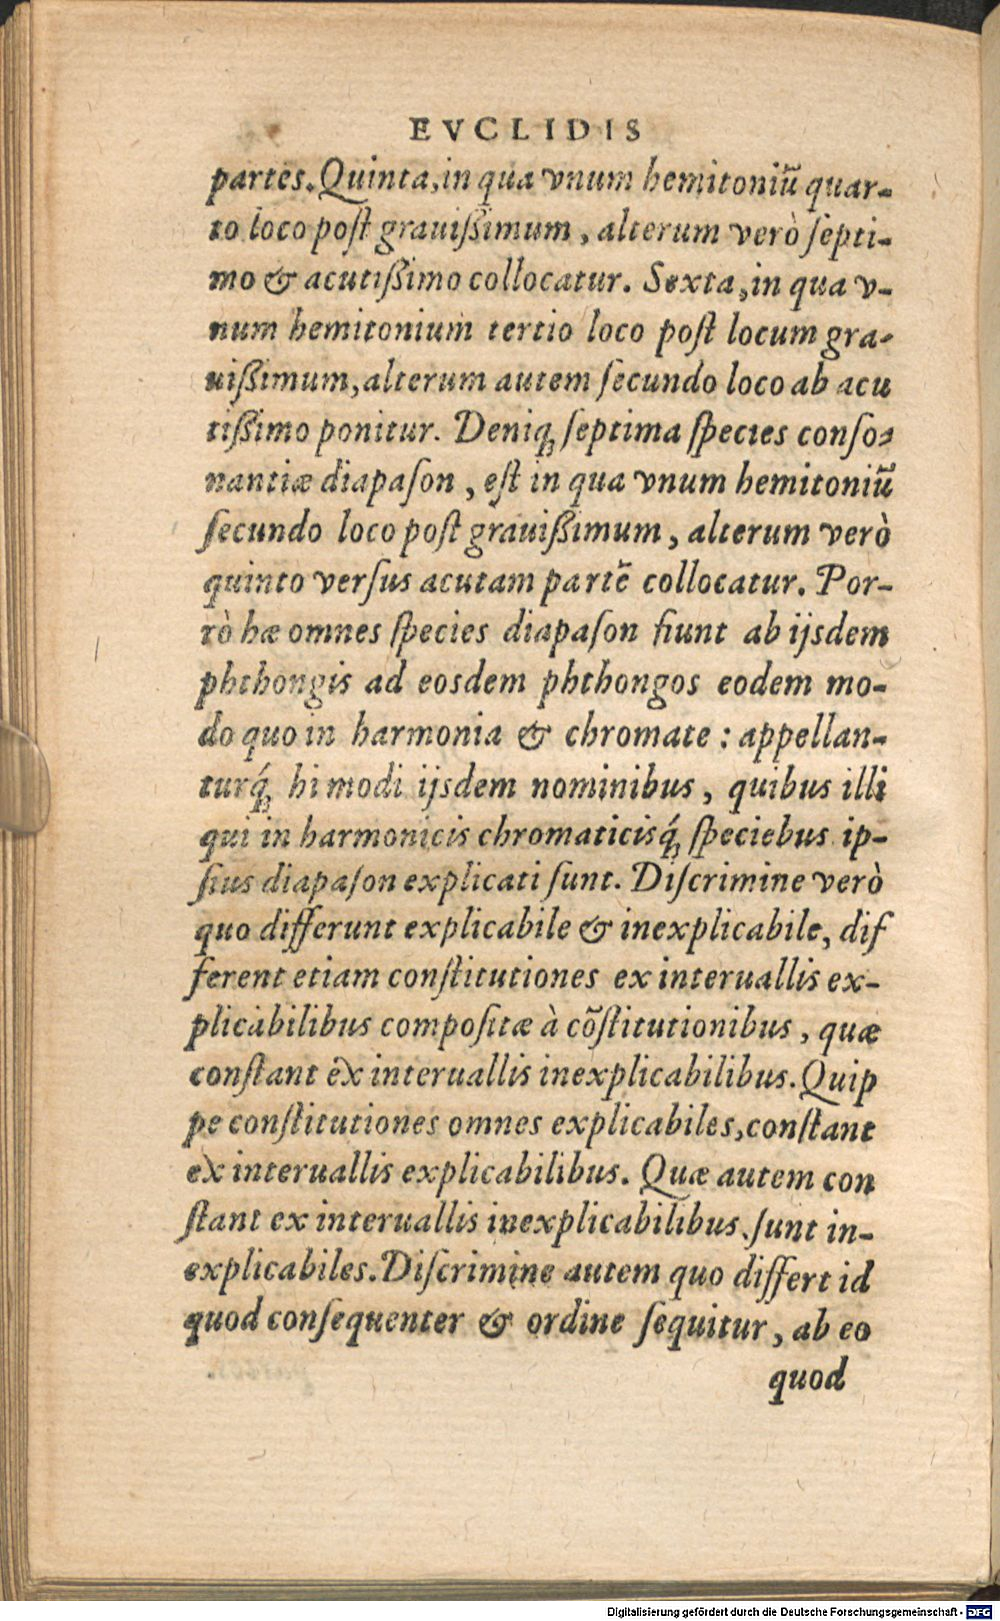 EVCLIDIS
partes. Quinta, in qua vnum hemitoniū quar-
to loco poſt grauiſsimum, alterum verò ſepti-
mo & acutiſsimo collocatur. Sexta, in qua v-
num hemitonium tertio loco poſt locum gra-
uiſsimum, alterum autem ſecundo loco ab acu
tiſsimo ponitur. Deniqꝫ ſeptima ſpecies conſo-
nantiæ diapaſon, eſt in qua vnum hemitoniū
ſecundo loco poſt grauiſsimum, alterum verò
quinto verſus acutam partē collocatur. Por-
rò hæ omnes ſpecies diapaſon fiunt ab ijsdem
phthongis ad eosdem phthongos eodem mo-
do quo in harmonia & chromate: appellan-
turq́ꝫ hi modi ijsdem nominibus, quibus illi
qui in harmonicis chromaticisq́ꝫ ſpeciebus ip-
ſius diapaſon explicati ſunt. Diſcrimine verò
quo differunt explicabile & inexplicabile, dif
ferent etiam conſtitutiones ex interuallis ex-
plicabilibus compoſitæ à cōſtitutionibus, quæ
conſtant ex interuallis inexplicabilibus. Quip
pe conſtitutiones omnes explicabiles, conſtant
ex interuallis explicabilibus. Quæ autem con
ſtant ex interuallis inexplicabilibus, ſunt in-
explicabiles. Diſcrimine autem quo differt id
quod conſequenter & ordine ſequitur, ab eo
quod
Digitalisierung gefördert durch die Deutsche Forschungsgemeinschaft - DFG